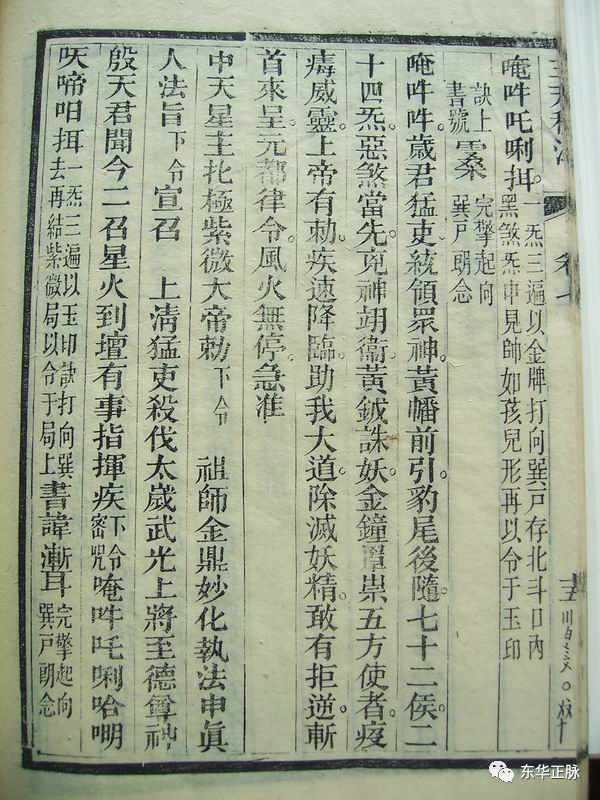 唵吽吒唎挕。一炁三遍以金牌打向巽戶存北斗口內
黑煞炁中見師如孩兒形再以令于玉印
訣上書號 完擎起向巽戶朝念
唵吽吽。歲君猛吏統領眾神。黃幡前引。豹尾後隨。七十二侯。二
十四炁惡煞當先。兇神翊衞。黃鉞誅妖。金鐘罩祟。五方使者。疫
癘威靈。上帝有勅疾速降臨。助我大道。除滅妖精。敢有拒逆斬
首來呈。元都律令。風火無停。急准
中天星主北極紫微大帝勅下令 祖師金鼎妙化執法申眞
人法旨下令宣召 上清猛吏殺伐太歲武光上將至德尊神
殷天君聞今二召星火到壇有事指揮疾下令密咒唵吽吒唎哈
啼呾挕一炁三遍以玉印訣打向巽去再結紫微局以令于局上書諱 完擎起向巽戶朝念
东华正脉